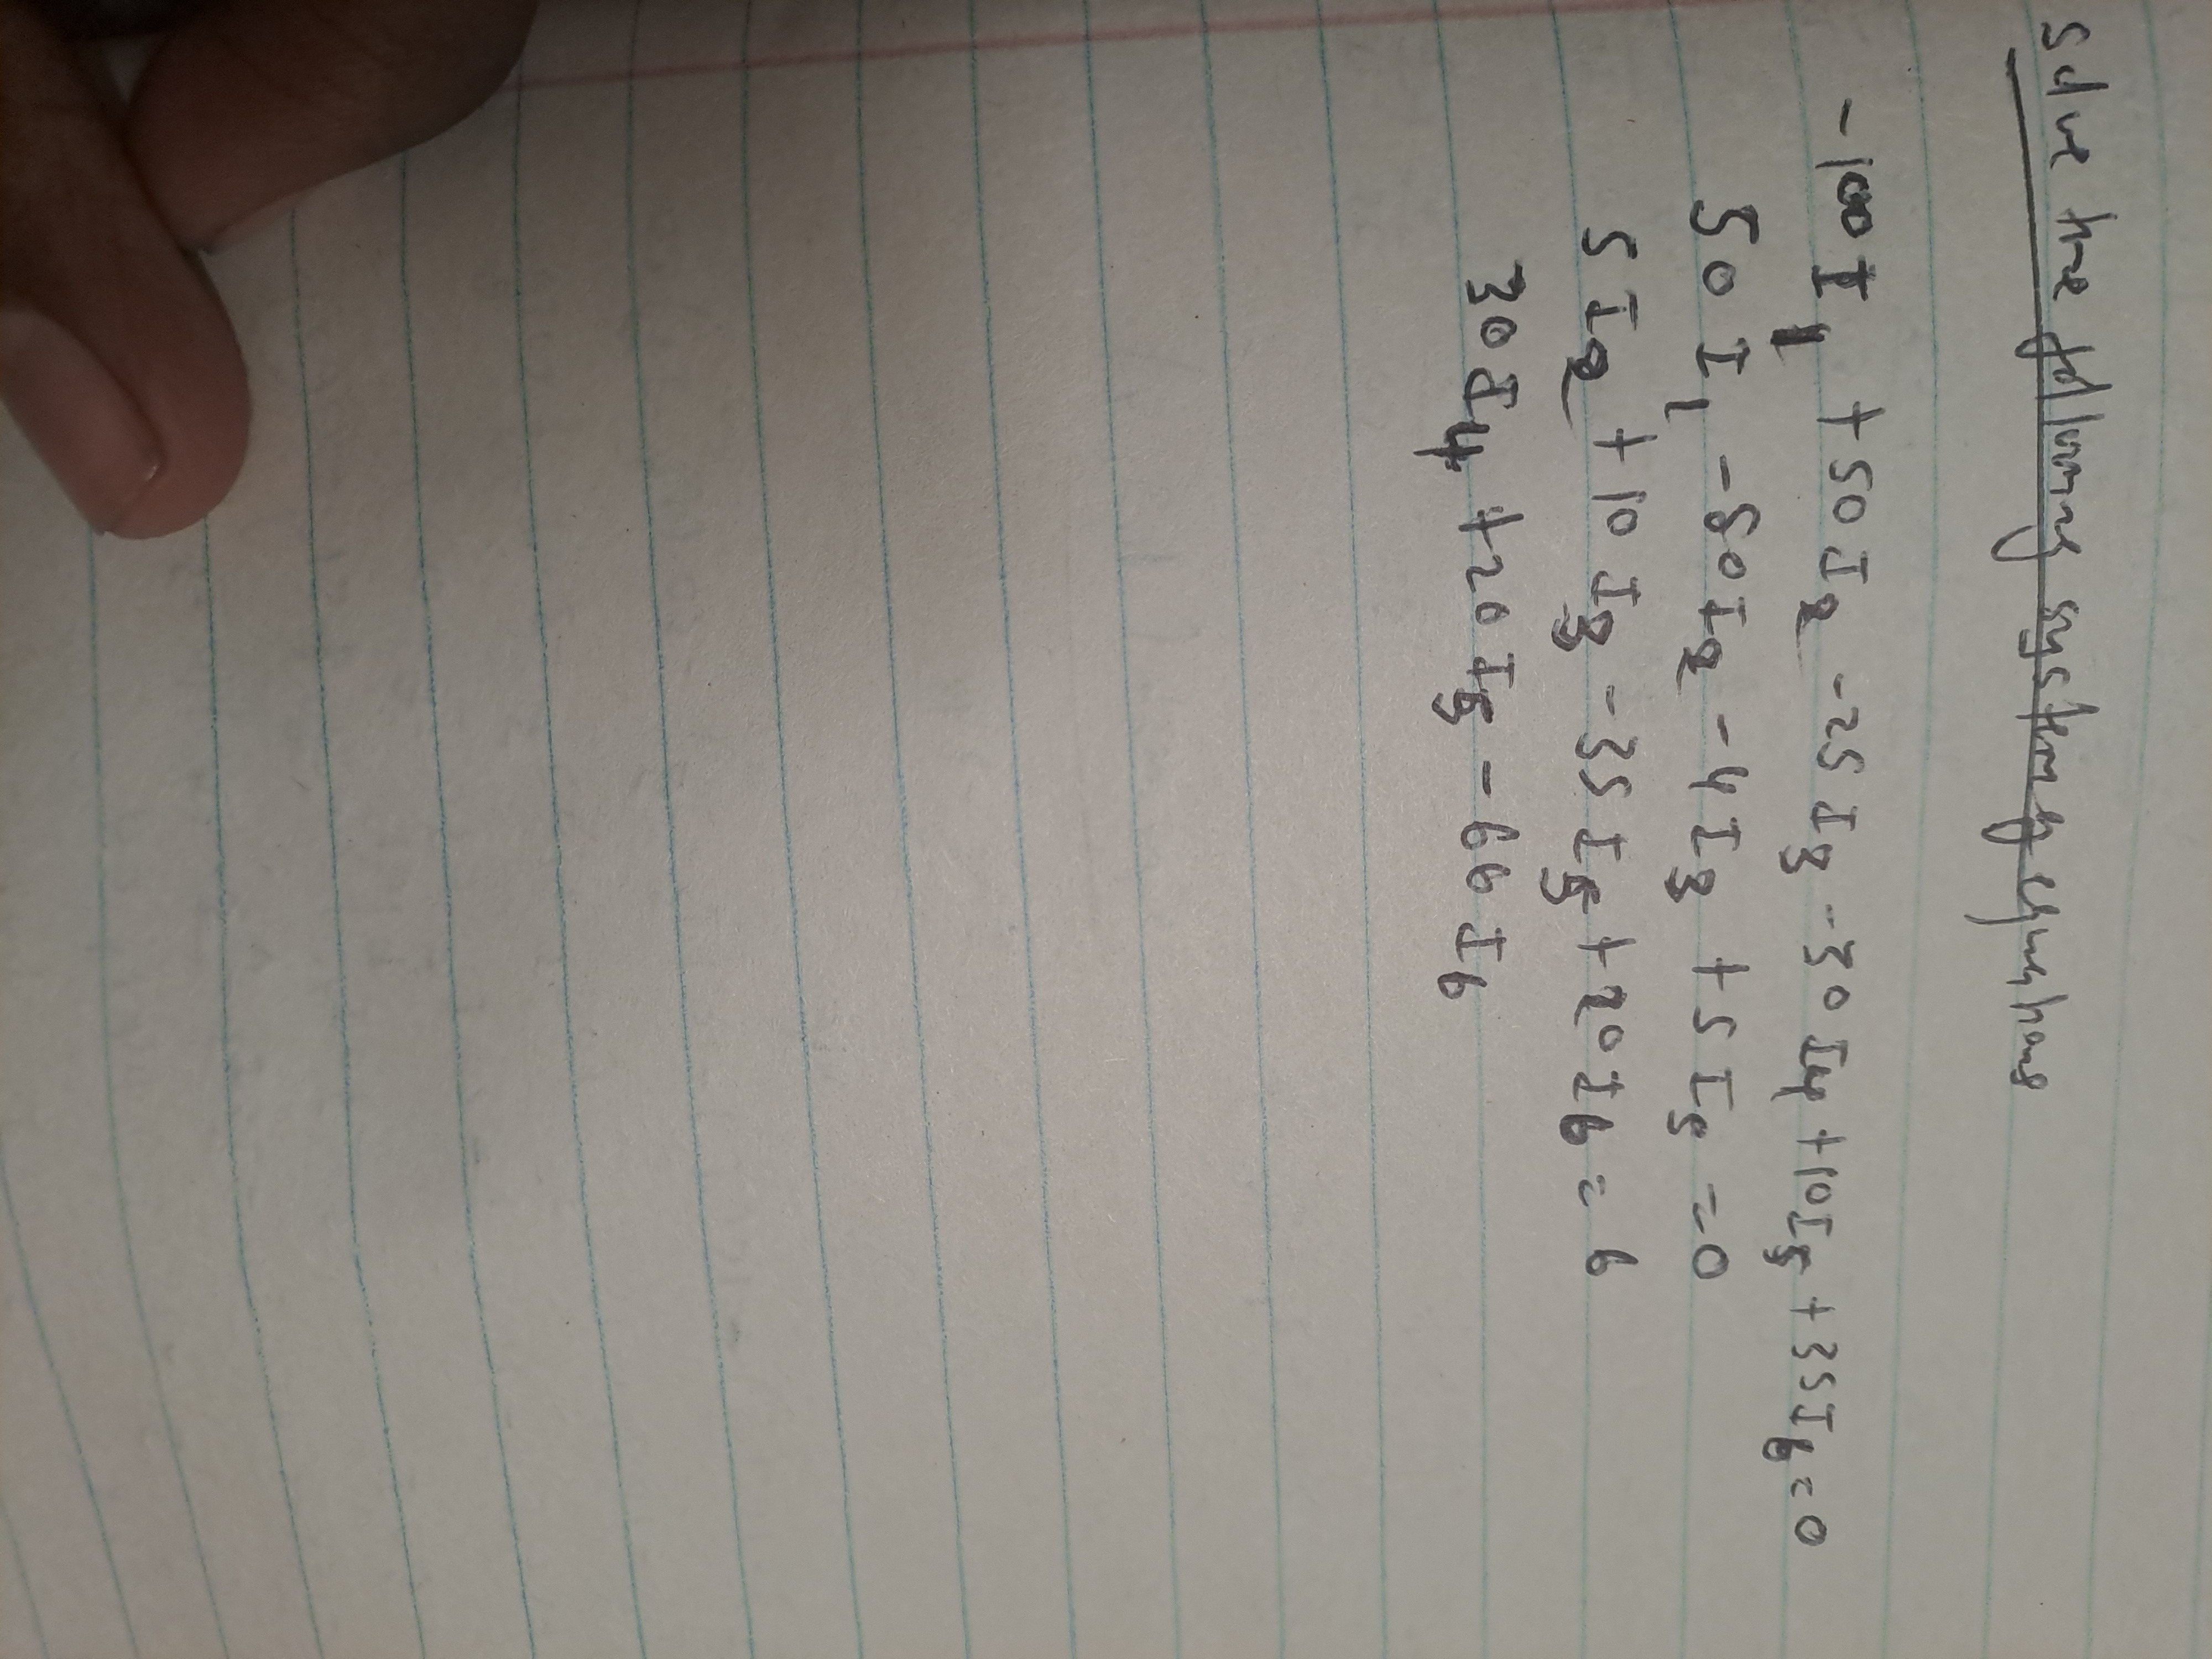 Solve the following system of equations
-100 I₁ + 50 I₂ - 25 I₃ - 30 I₄ + 10 I₅ + 35 I₆ = 0
50 I₁ - 80 I₂ - 4 I₃ + 5 I₅ = 0
5 I₂ + 10 I₃ - 35 I₅ + 20 I₆ = 6
30 I₄ + 20 I₅ - 66 I₆